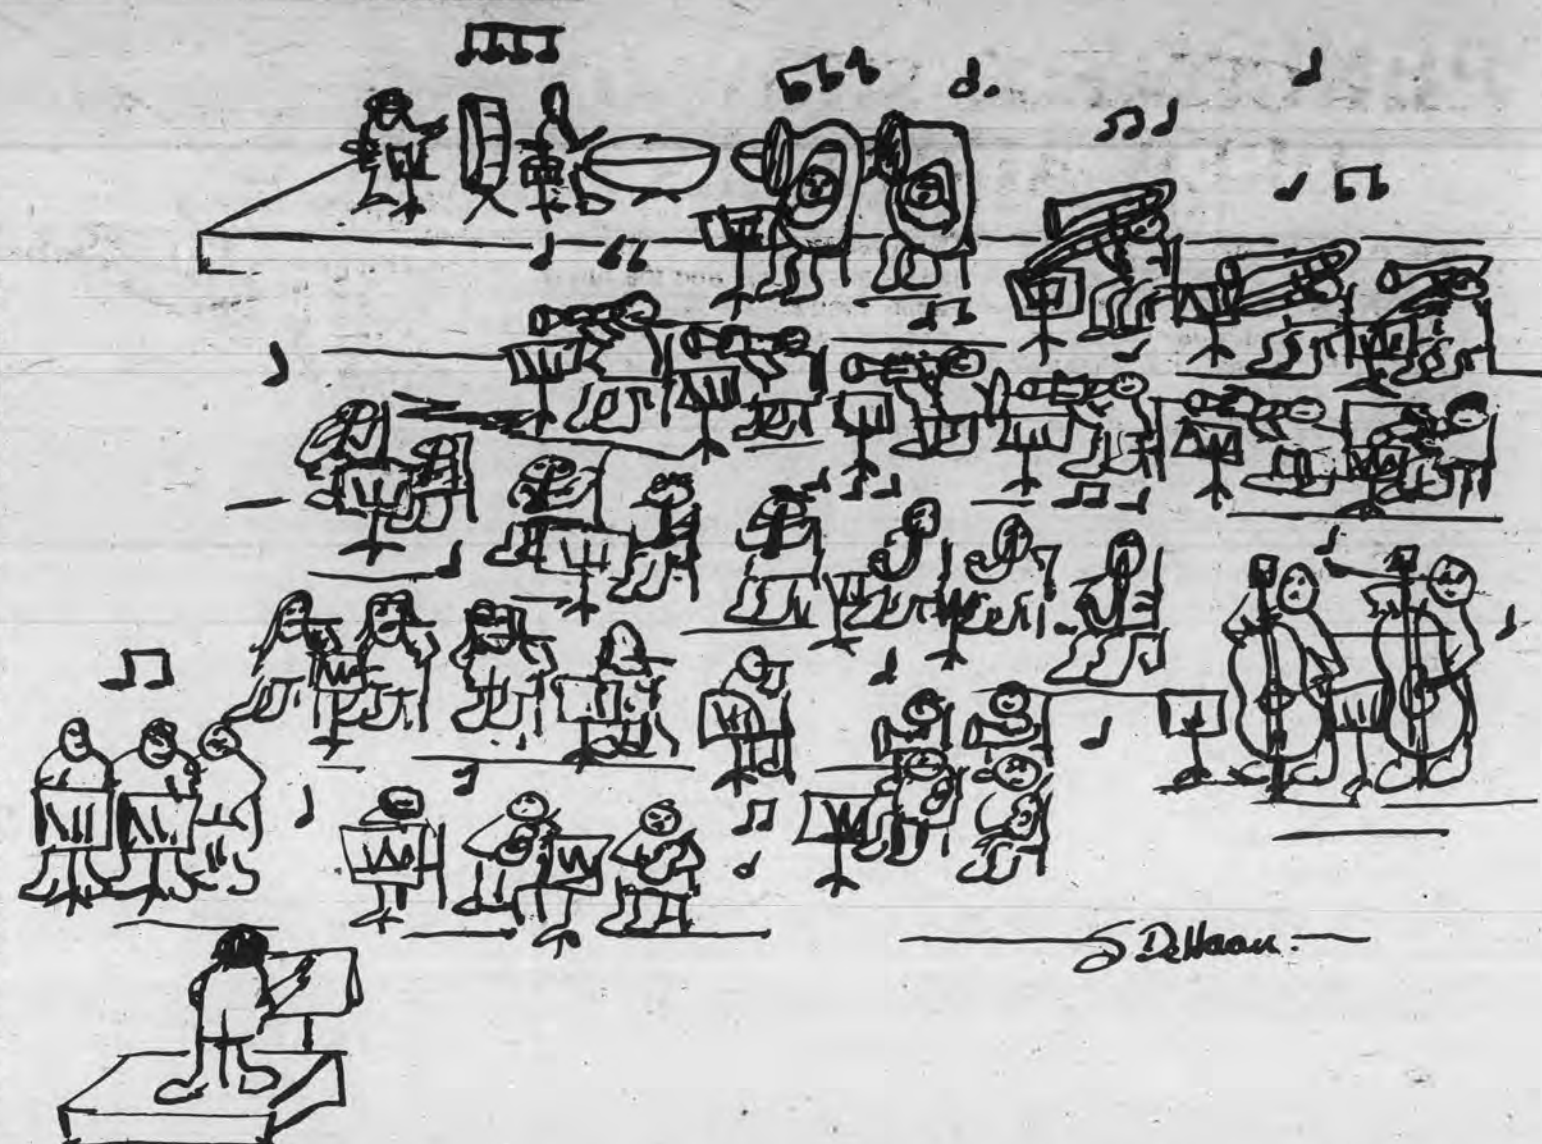 S DeHaan.